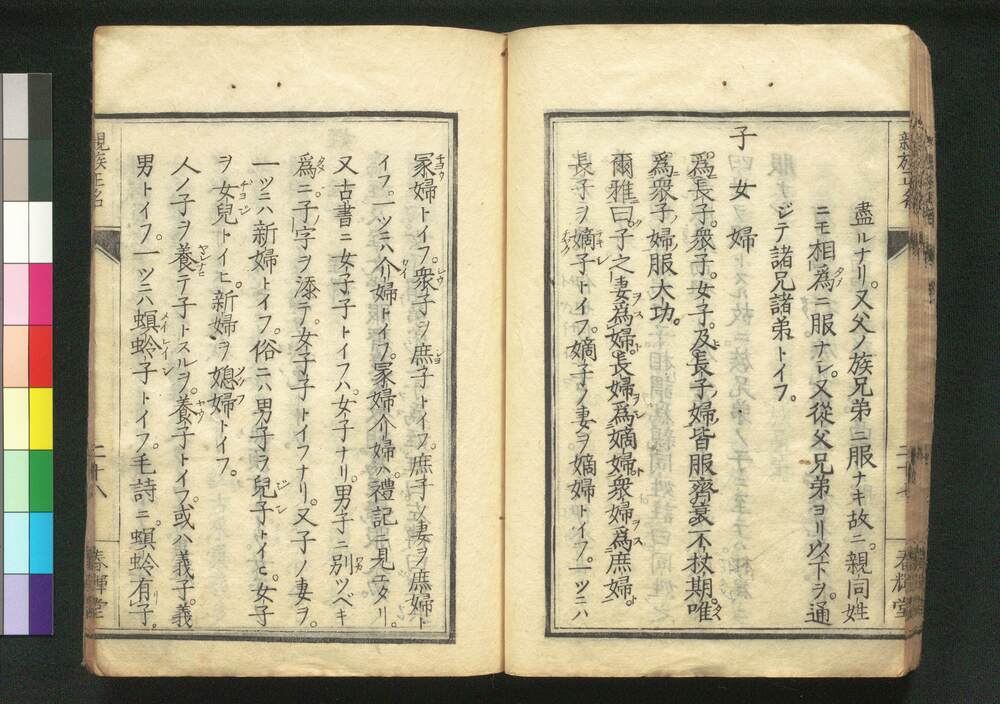 盡ルナリ。又父ノ族兄弟ニ服ナキ故ニ。親同姓
ニモ相爲ニ服ナシ。又從父兄弟ヨリ以下ヲ。通
ジテ諸兄諸弟トイフ。
子女婦
爲長子。衆子。女子。及長子ノ婦。皆服齊衰不杖期。唯
爲衆子ノ婦服大功。
爾雅曰。子之妻爲婦。長婦爲嫡婦。衆婦爲庶婦。
長子ヲ嫡子トイフ。嫡子ノ妻ヲ嫡婦トイフ。一ツニハ
親族正名
二十七
春輝堂
冢婦トイフ。衆子ヲ庶子トイフ。庶子ノ妻ヲ庶婦ト
イフ。一ツニハ介婦トイフ。冢婦介婦ハ。禮記ニ見エタリ。
又古書ニ女子子トイフハ。女子ナリ。男子ニ別ツベキ
爲ニ。子ノ字ヲ添テ。女子子トイフナリ。又子ノ妻ヲ。
一ツニハ新婦トイフ。俗ニハ男子ヲ兒子トイヒ。女子
ヲ女兒トイヒ。新婦ヲ媳婦トイフ。
人ノ子ヲ養テ子トスルヲ。養子トイフ。或ハ義子。義
男トイフ。一ツニハ螟蛉子トイフ。毛詩ニ。螟蛉有子。
親族正名
二十八
春輝堂